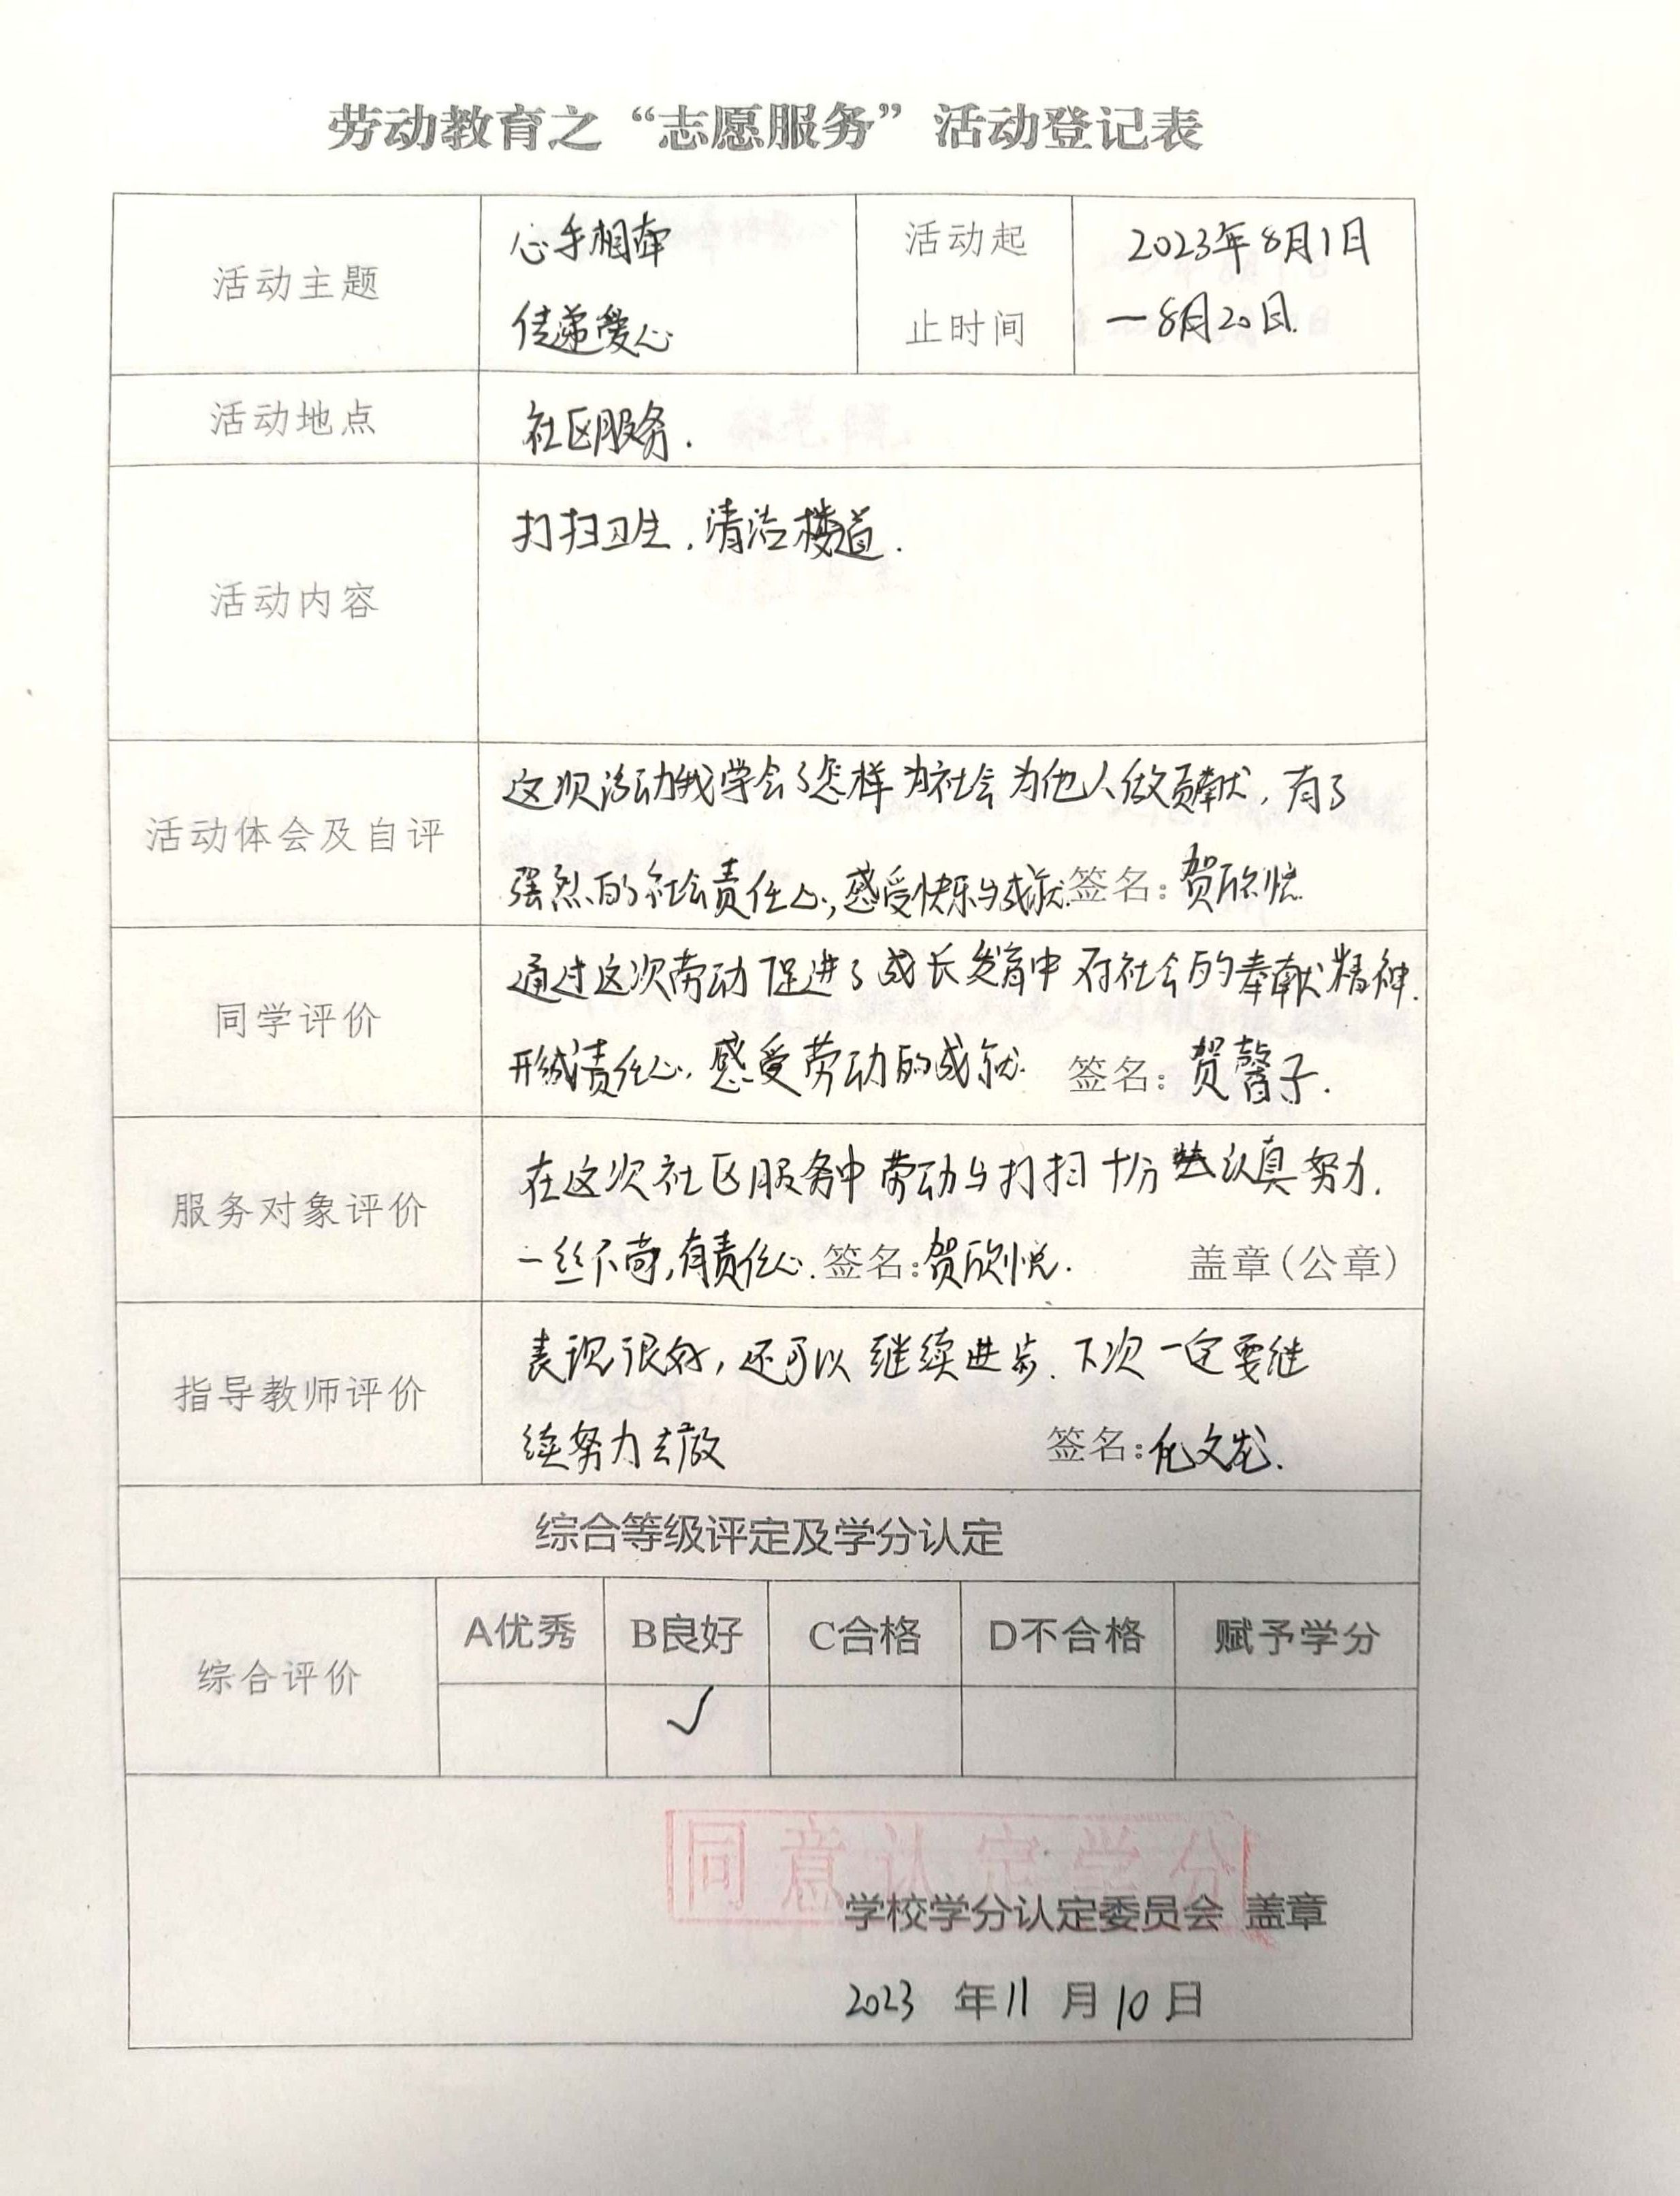 劳动教育之“志愿服务”活动登记表
活动主题
心手相牵
传递爱心
活动起
止时间
2023年8月1日
—8月20日.
活动地点
社区服务.
活动内容
打扫卫生,清洁楼道.
活动体会及自评
这次活动我学会了怎样为社会为他人做贡献,有了
强烈的社会责任心,感受快乐与成就.签名:贺欣悦
同学评价
通过这次劳动促进了成长发育中对社会的奉献精神.
形成责任心,感受劳动的成就. 签名:贺馨子.
服务对象评价
在这次社区服务中劳动与打扫十分认真努力.
一丝不苟,有责任心.签名:贺欣悦. 盖章(公章)
指导教师评价
表现很好,还可以继续进步.下次一定要继
续努力去做 签名:文龙.
综合等级评定及学分认定
综合评价
A优秀 B良好 C合格 D不合格 赋予学分
✓
同意认定学分
学校学分认定委员会 盖章
2023 年 11 月 10 日